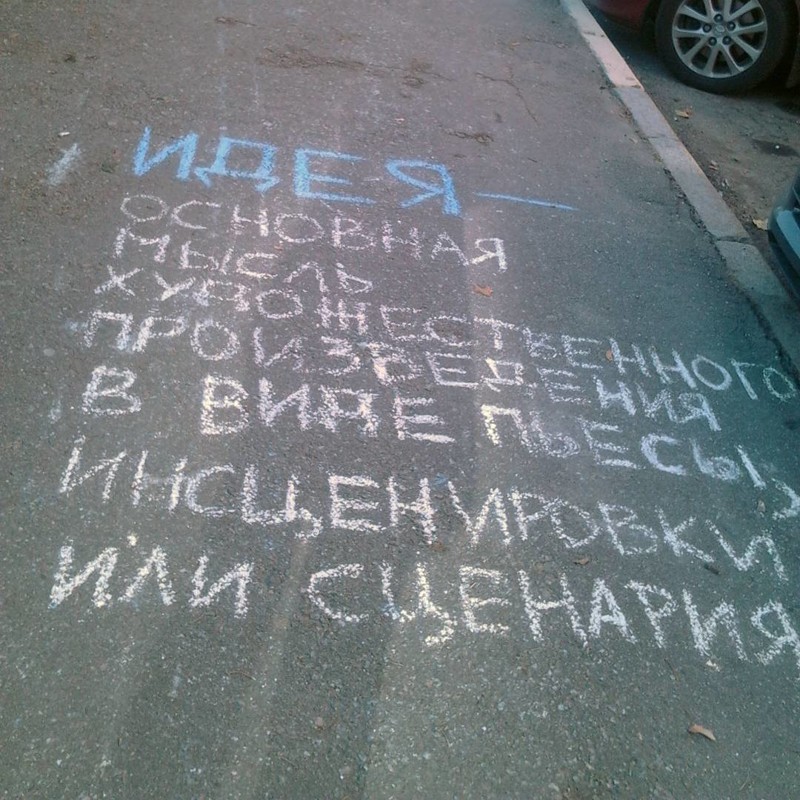 ИДЕЯ —
ОСНОВНАЯ
МЫСЛЬ
ХУДОЖЕСТВЕННОГО
ПРОИЗВЕДЕНИЯ
В ВИДЕ ПЬЕСЫ,
ИНСЦЕНИРОВКИ
ИЛИ СЦЕНАРИЯ